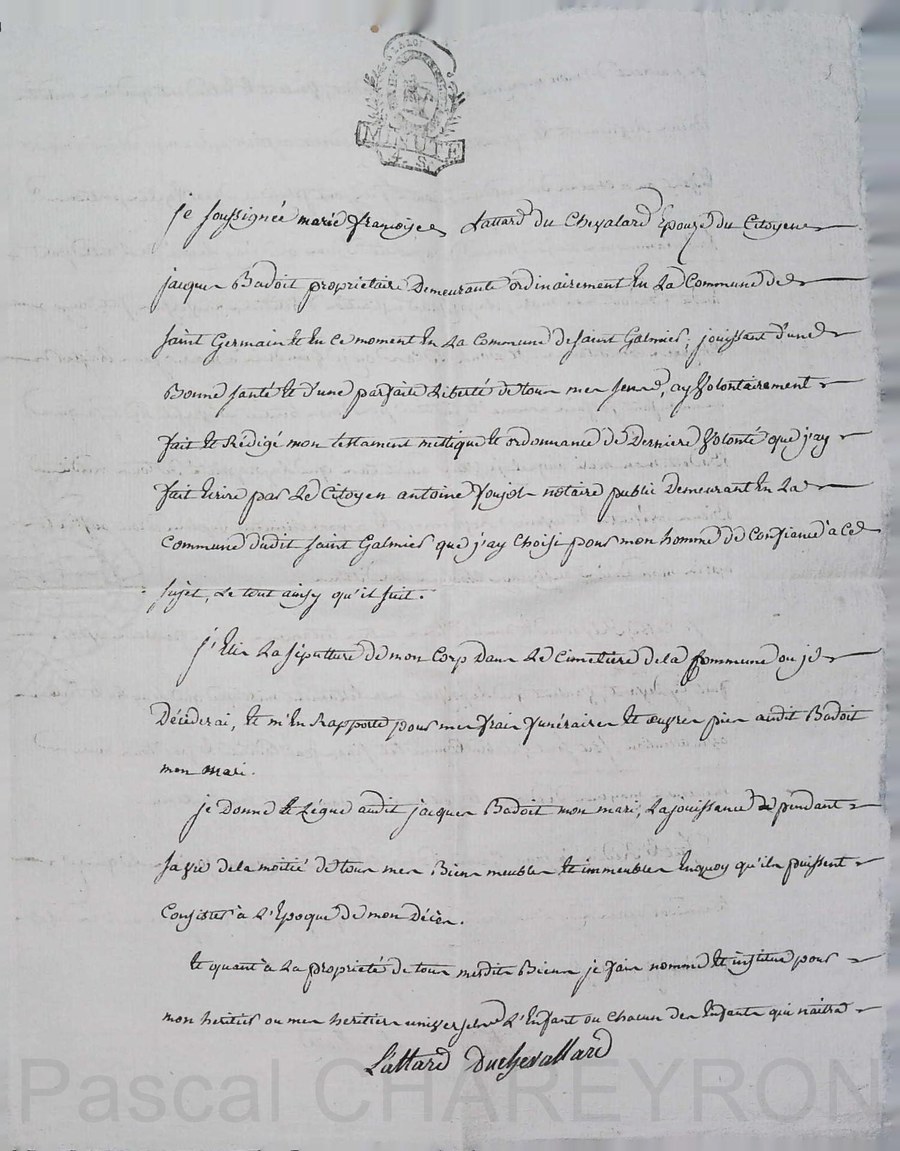 A LA LOI
MINUTE
4. S.
je soussignée marie françoise Lattard du Chevalard Epouze du Citoyen
jacques Badoit propriétaire Demeurante ordinairement En La Commune de
saint Germain et En Ce moment En La Commune de saint Galmier, jouissant d'une
Bonne santé et d'une parfaite Liberté de tous mes sens, ay Volontairement
fait et Rédigé mon testament mistique et ordonnance de Derniere Volonté que j'ay
fait Ecrire par Le Citoyen antoine notaire public Demeurant En La
Commune dudit saint Galmier que j'ay Choisi pour mon homme de Confiance à Ce
sujet, Le tout ainsy qu'il suit.
j'Elis La sépulture de mon Corp Dans Le Cimetière de la Commune ou je
Décéderai, et m'En Rapporte pour mes frais funéraires et œuvres pies audit Badoit
mon mari.
je Donne et Légue audit jacques Badoit mon mari, La jouissance pendant
sa vie de la moitié de tous mes Biens meubles et immeubles En quoy qu'ils puissent
Consister à L'Epoque de mon Décès.
et quant à La propriété de tous mesdits Biens je fais nomme et institue pour
mon heritier ou mes heritiers universels L'Enfant ou Chacun des Enfants qui naitra
Lattard Duchevallard
Pascal CHAREYRON